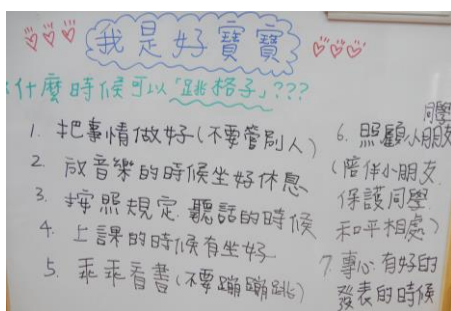 我是好寶寶
什麼時候可以「跳格子」???
1. 把事情做好(不要管別人)
2. 放音樂的時候坐好休息
3. 按照規定.聽話的時候
4. 上課的時候有坐好
5. 乖乖看書(不要蹦蹦跳)
同學
6. 照顧小朋友
(陪伴小朋友.
保護同學
和平相處)
7. 專心.有好的
發表的時候